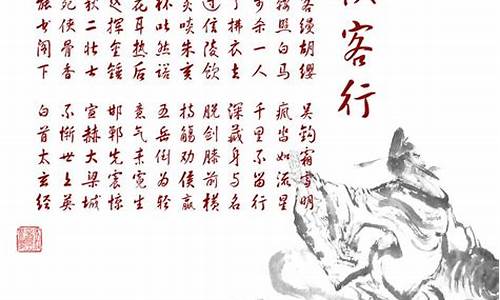 侠客行
客缦胡缨
吴钩霜雪明
鞍照白马
飒沓如流星
步杀一人
千里不留行
了拂衣去
深藏身与名
过信陵饮
脱剑膝前横
炙啖朱亥
持觞劝侯嬴
杯吐然诺
五岳倒为轻
花耳热后
意气素霓生
赵挥金锤
邯郸先震惊
秋二壮士
宣赫大梁城
死侠骨香
不惭世上英
能书阁下
白首太玄经